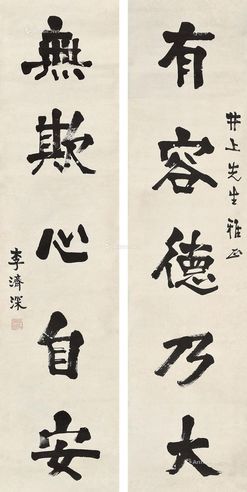 有容德乃大
井上先生雅正
無欺心自安
李濟深